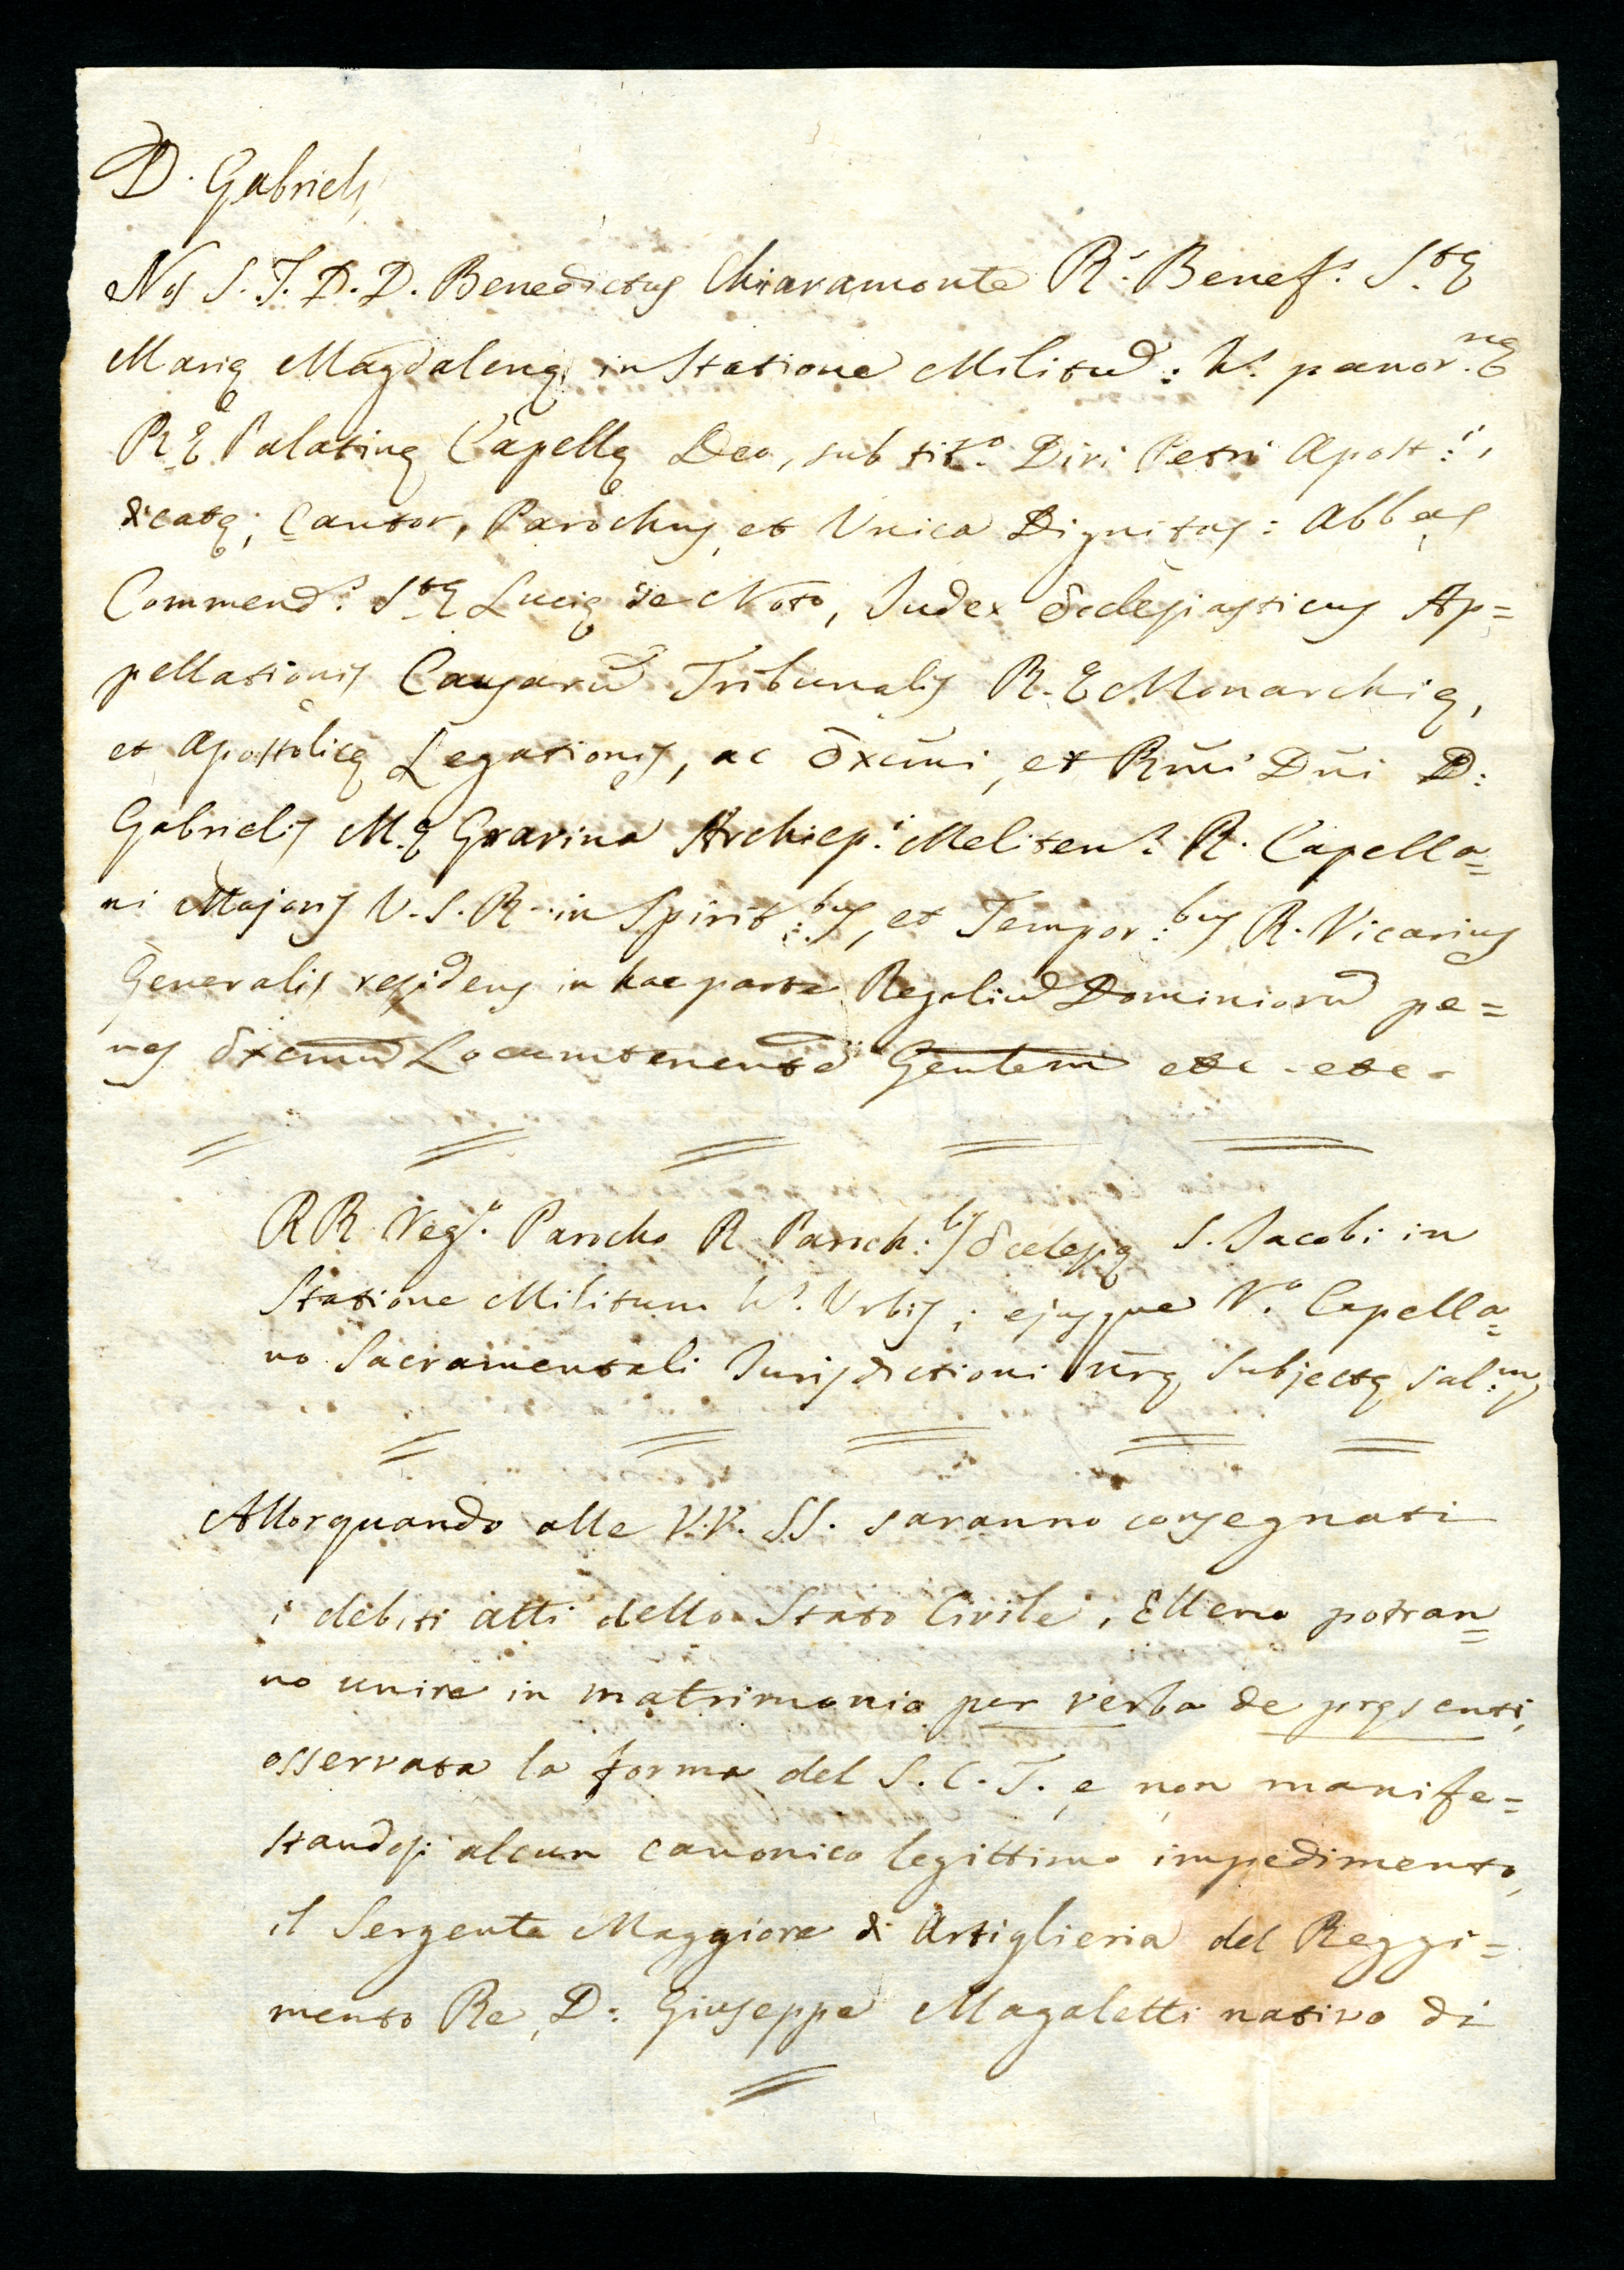 D. Gabriels
Nos S. T. D. D. Benedictus Chiaramonte R.s Benef.s S.tæ
Mariæ Magdalenæ in Statione Militū: h.s panor.næ
R.æ Palatinæ Capellæ Deo, sub tit.o Divi Petri Apost:i,
dicatæ; Cantor, Parochus, et Unica Dignitas: Abbas
Commend.s S.tæ Luciæ de Noto, Judex Ecclesiasticus Ap=
pellationis Causarū Tribunalis R. æ Monarchiæ,
et Apostolicæ Legationis, ac Excm̄i, et Rm̄i Dn̄i D:
Gabrielis M.æ Gravina Archiep.i Meliten.s R. Capella=
ni Majoris U. S. R. in Spirit:bus, et Tempor:bus R. Vicarius
Generalis residens in hac parte Regaliū Dominiorū pe=
nes Excmū Locumtenentē Gentem etc. etc.
RR Veg.o Parocho R. Paroch:lis Ecclesiæ S. Jacobi in
Statione Militum h.s Urbis; ejusque V.o Capella=
no Sacramentali Jurisdictioni nr̄æ subjectæ sal:m
Allorquando alle V.V. SS. saranno consegnati
i debiti atti dello Stato Civile, Elleno potran=
no unire in matrimonio per verba de præsenti,
osservata la forma del S. C. T. e non manife=
standosi alcun canonico legittimo impedimento,
il Sergente Maggiore di Artiglieria del Reggi=
mento Re, D: Giuseppe Magaletti nativo di